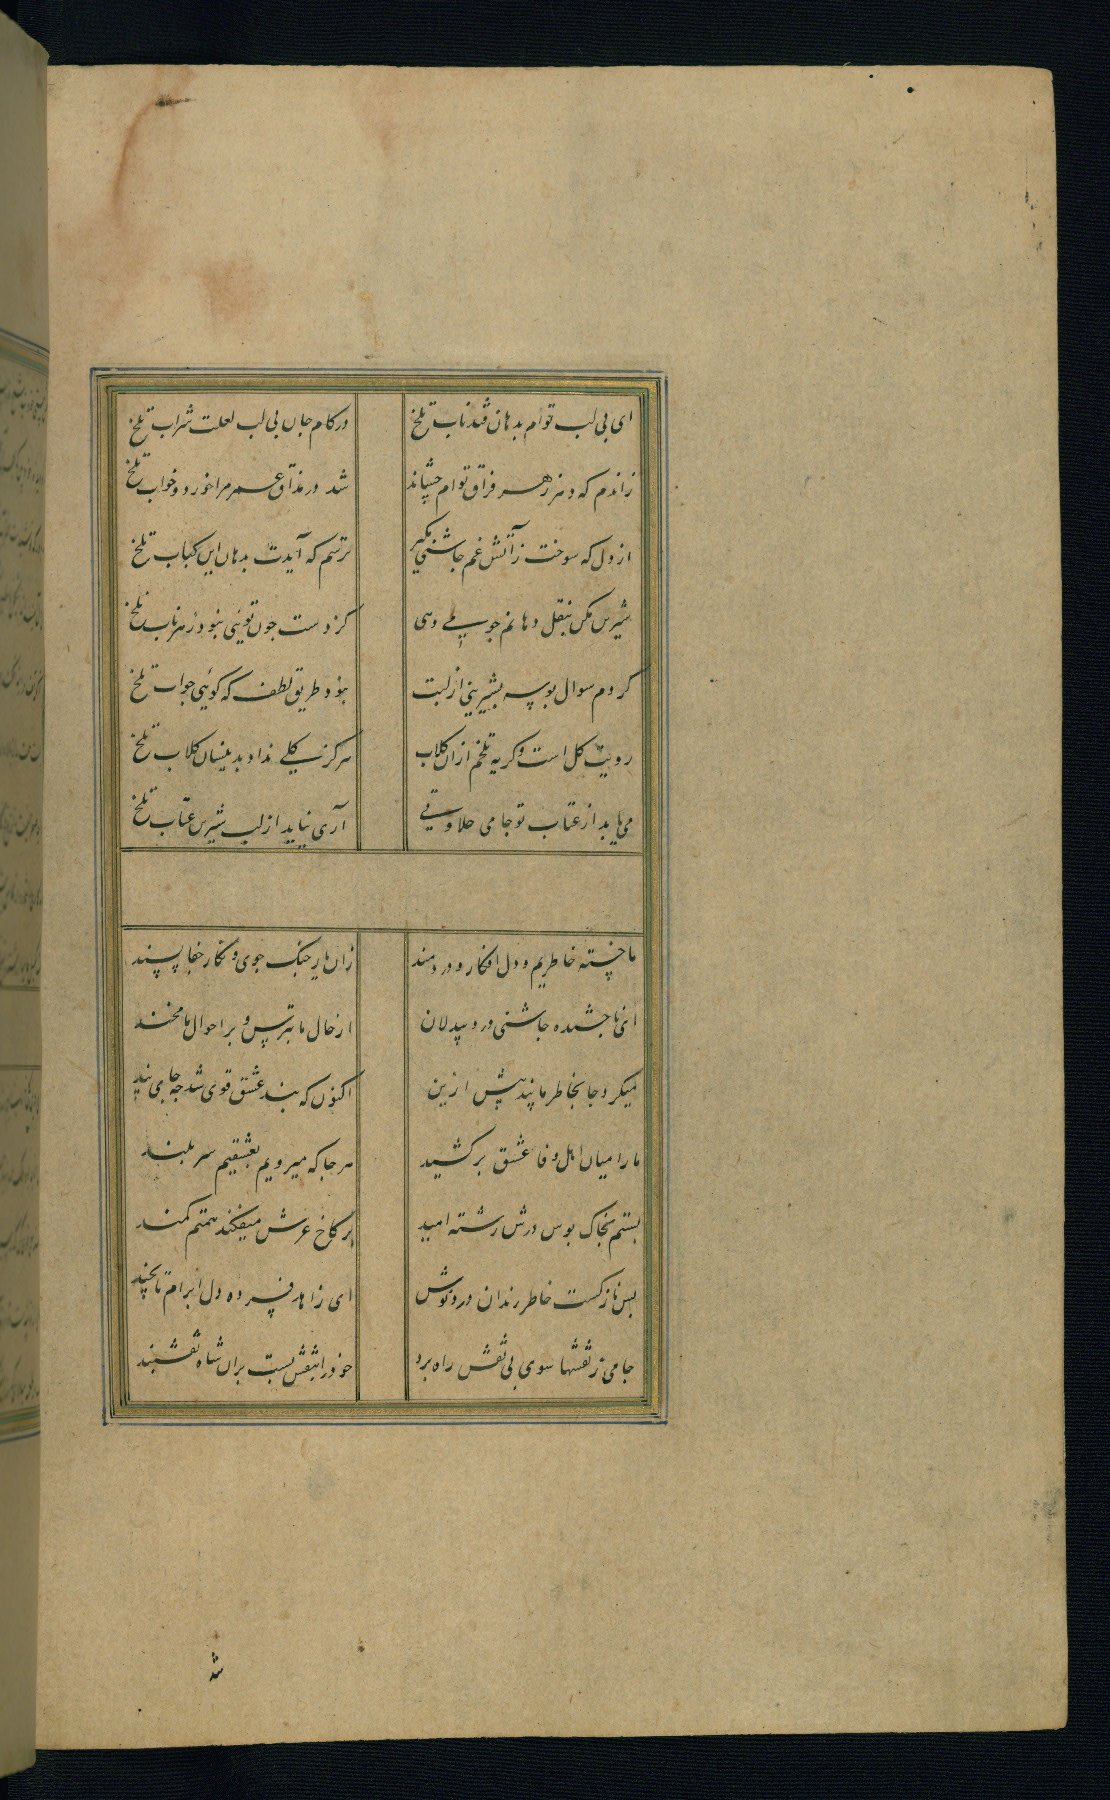 ای بی لب توام بدهان قند ناب تلخ در کام جان بی لب لعلت شراب تلخ
زاندم که دهر زهر فراق توام چشاند شد در مذاق عمر مرا خورد و خواب تلخ
از دل که سوخت ز آتش غم چاشنی مگیر ترسم که آیدت بدهان این کباب تلخ
شیرین مکن بنقل دهانم چو می دهی کز دست چون تویی نبود زهر ناب تلخ
کردم سوال بوسه بشیرینی از لبت نبود طریق لطف که گوئی جواب تلخ
رویت گل است و گریه تلخم ازان گلاب هرگز گلی نداد بدینسان گلاب تلخ
می یابد از عتاب تو جامی حلاوتی آری نیاید از لب شیرین عتاب تلخ
ما خسته خاطریم و دل افکار و دردمند زان یار جنگ جوی و نگار جفا پسند
ای ناچشیده چاشنی درد بیدلان از حال ما بترس و بر احوال ما مخند
میکرد جا بخاطر ما پند پیش ازین اکنون که بند عشق قوی شد چه جای پند
ما را میان اهل وفا عشق برکشید هر جا که میرویم بعشقیم سر بلند
بستم بخاک بوس درش رشته امید بر کاخ عرش میفکند همتم کمند
بس نازکست خاطر رندان درد نوش ای زاهد فسرده دل ابرام تا بچند
جامی ز نقشها سوی بی نقش راه برد خود را بنقش بست بران شاه نقشبند
شد